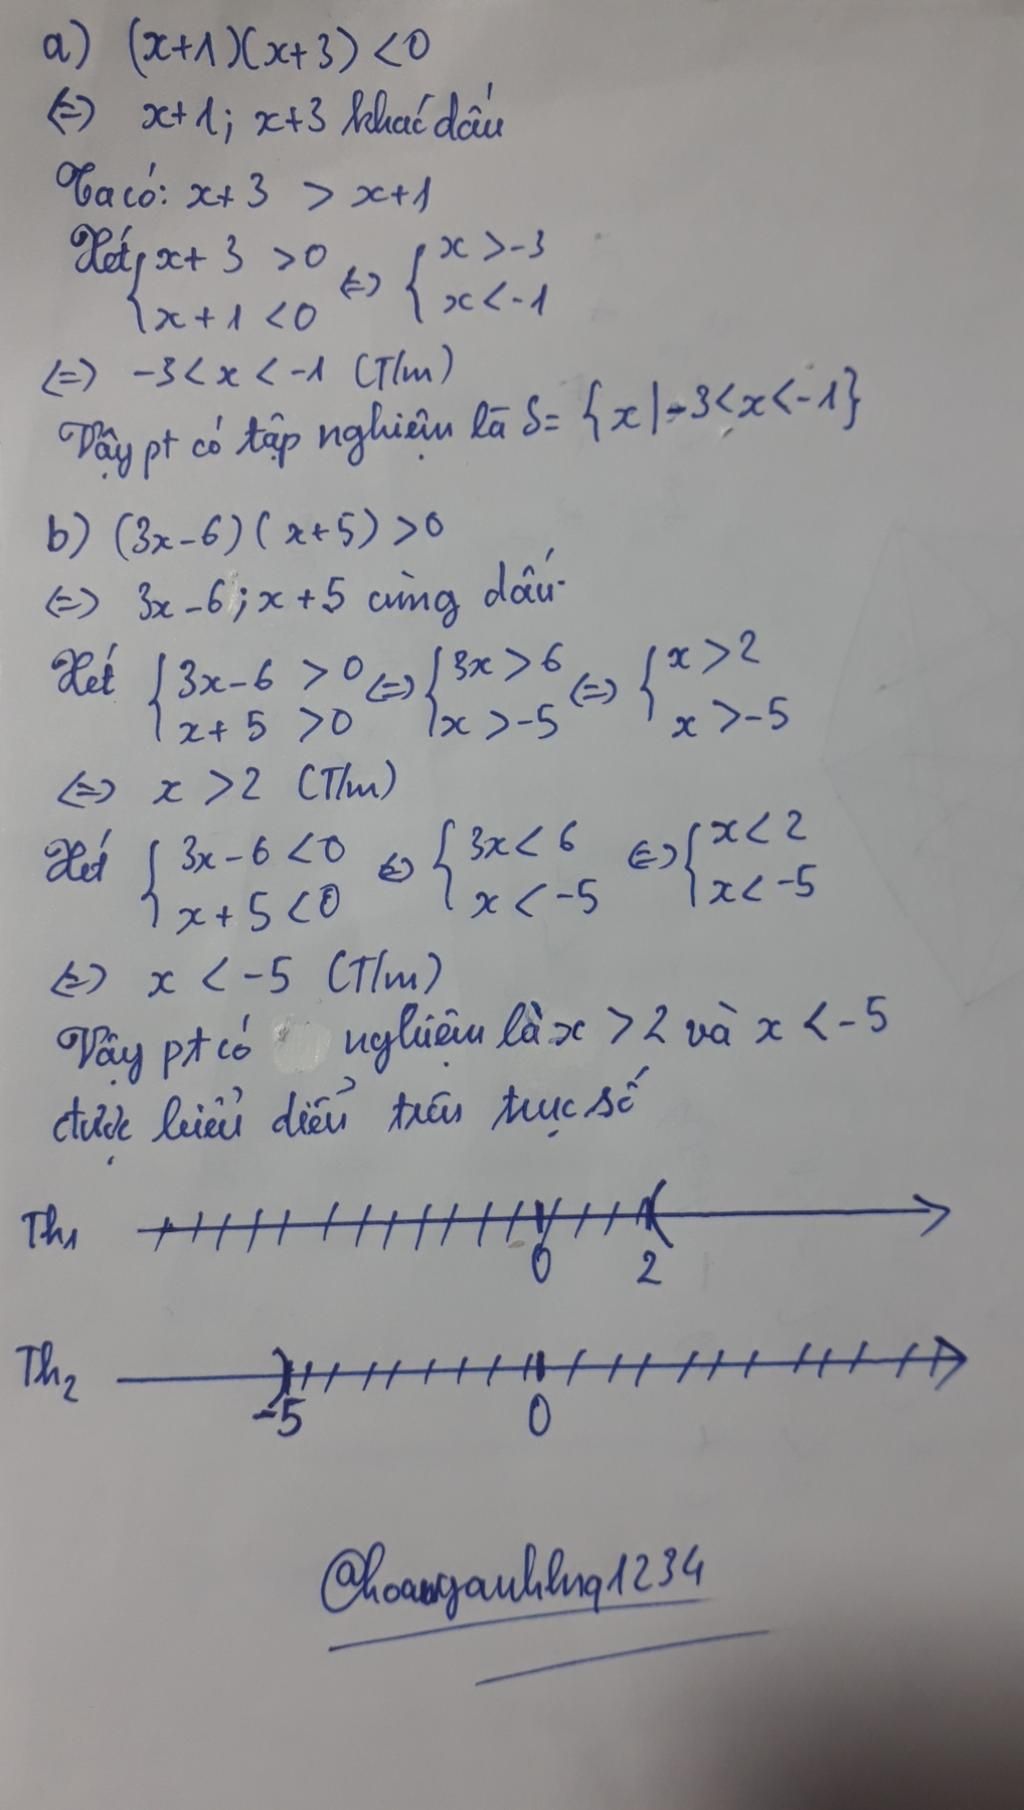 a) (x+1)(x+3) <0
<=> x+1; x+3 khác dấu
Ta có: x+3 > x+1
Xét { x+3 >0 <=> { x >-3
x+1 <0 x < -1
<=> -3 < x < -1 (T/m)
Vậy pt có tập nghiệm là S= {x|-3<x<-1}
b) (3x-6)(x+5) >0
<=> 3x-6; x+5 cùng dấu
Xét { 3x-6 >0 <=> { 3x > 6 <=> { x >2
x+5 >0 x >-5 x >-5
<=> x >2 (T/m)
Xét { 3x-6 <0 <=> { 3x < 6 <=> { x < 2
x+5 <0 x < -5 x < -5
<=> x < -5 (T/m)
Vậy pt có nghiệm là x >2 và x < -5
được biểu diễn trên trục số
Th1
0 2
Th2
-5 0
@hoanganhhnq1234